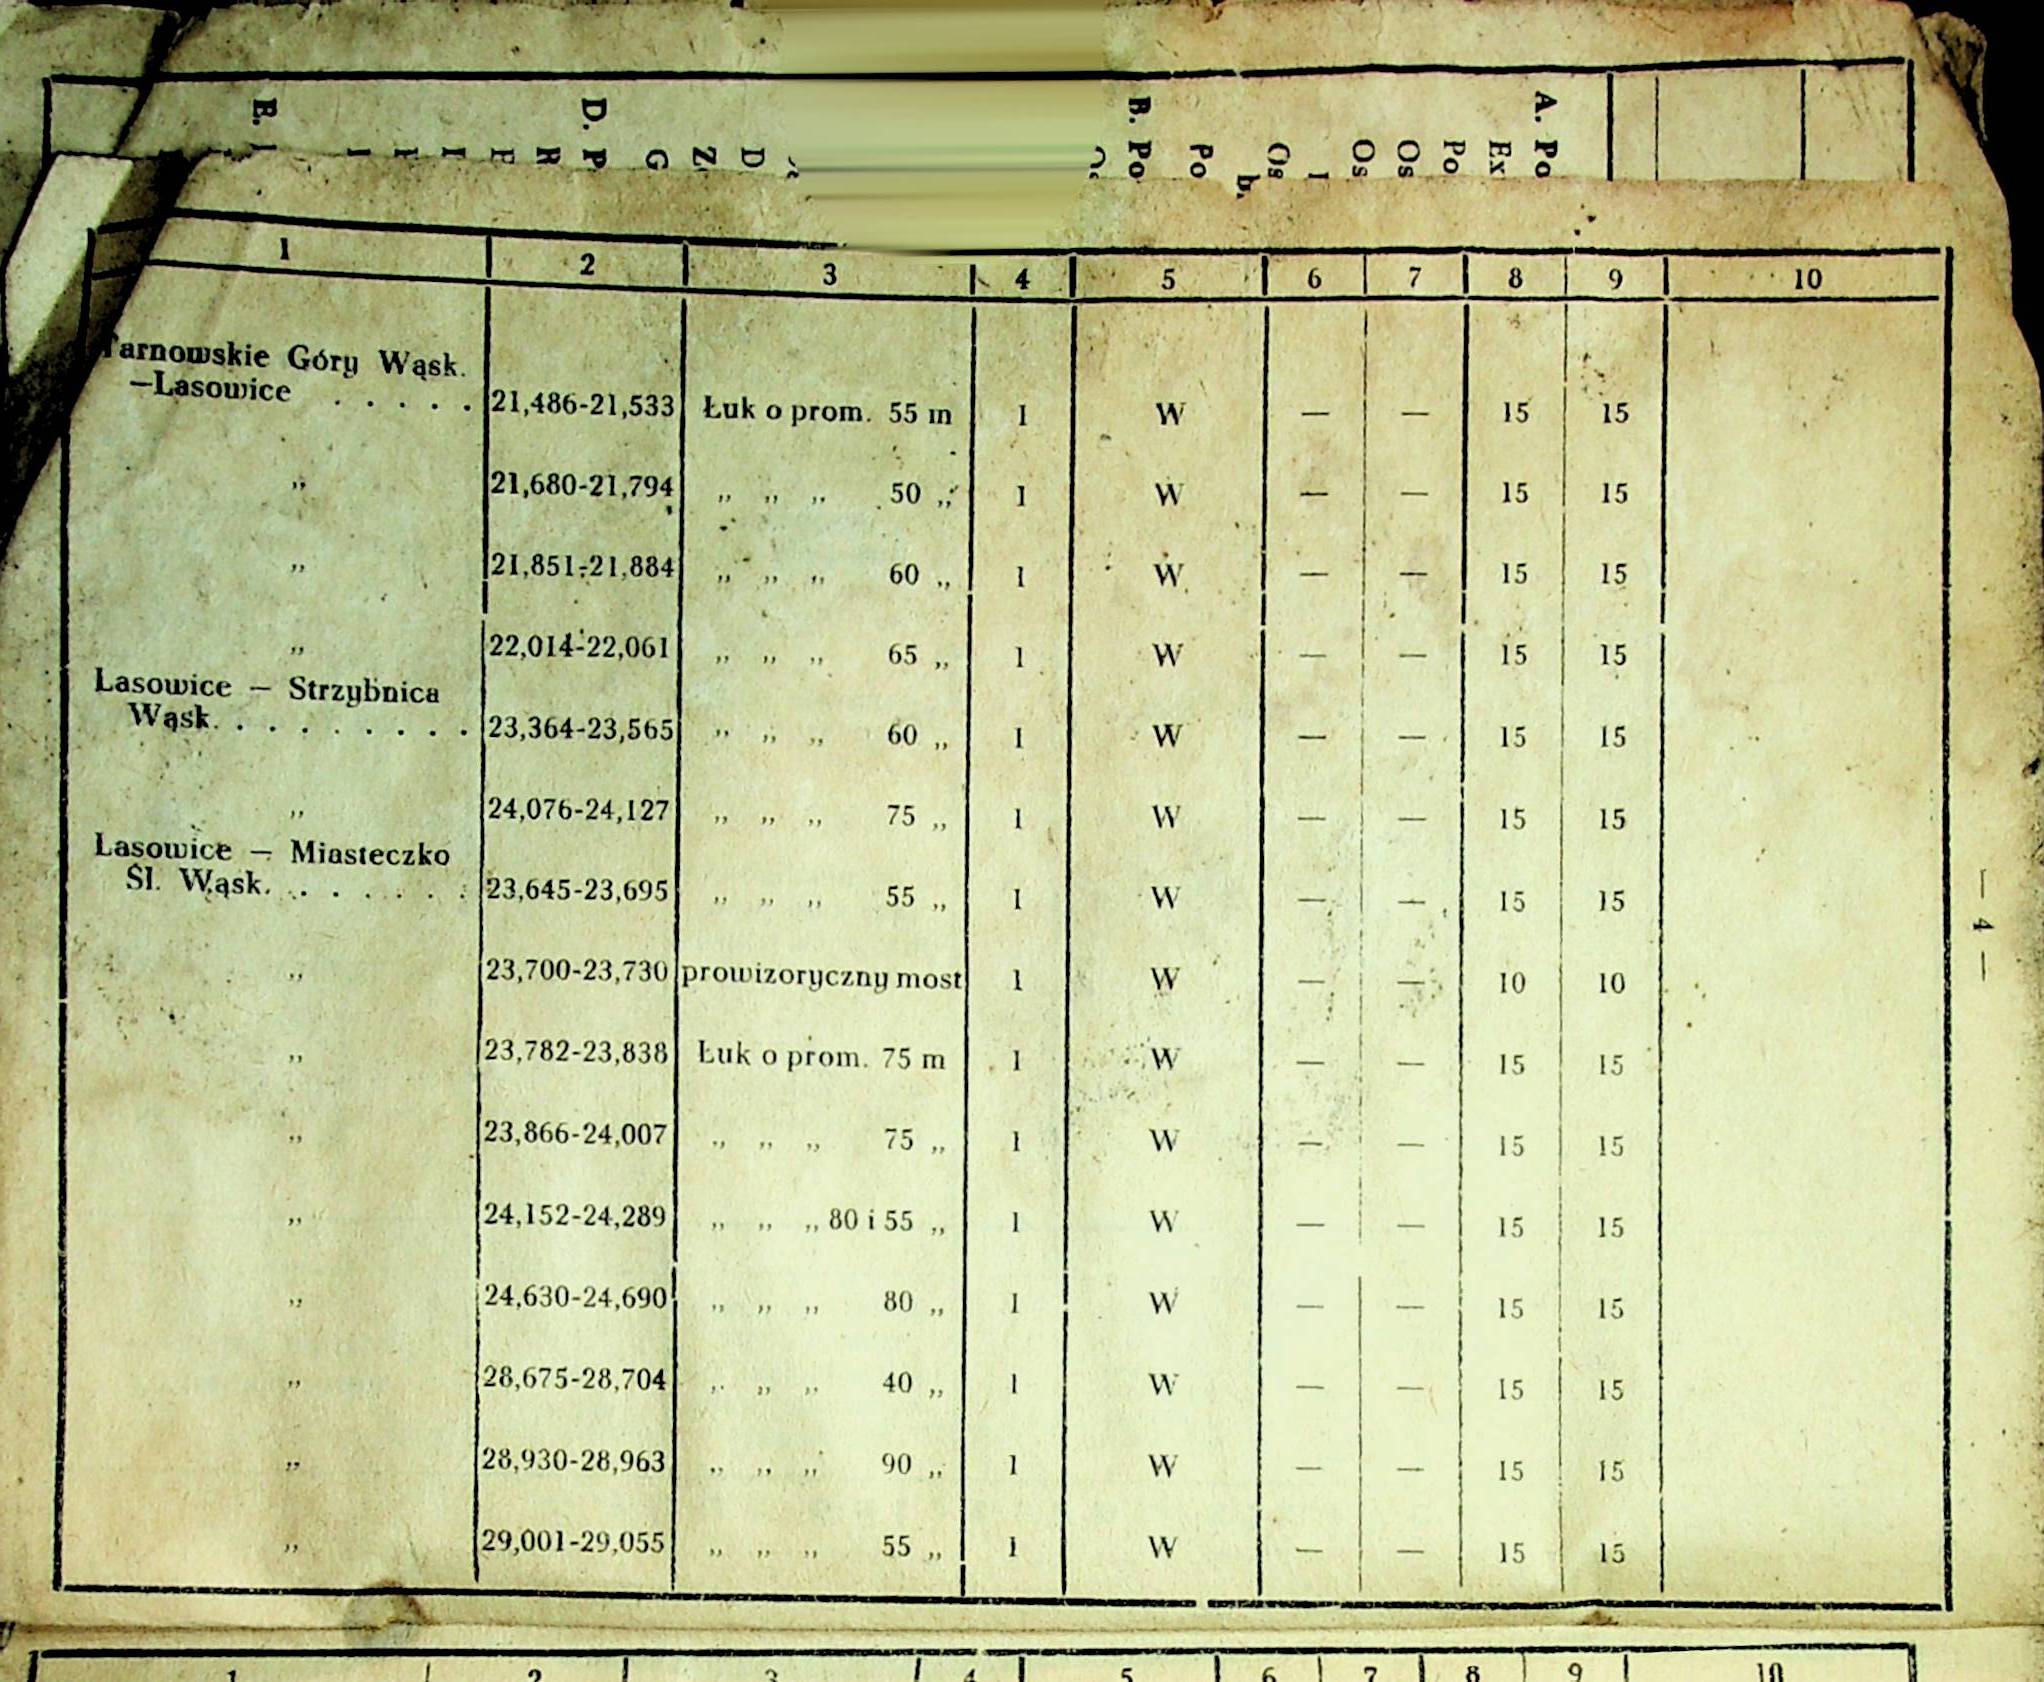 E. D. P G Z D B. Po Po b. Os I Os Os Po Ex A. Po
1 2 3 4 5 6 7 8 9 10
Tarnowskie Góry Wąsk.
—Lasowice . . . . . 21,486-21,533 Łuk o prom. 55 m 1 W — — 15 15
„ 21,680-21,794 „ „ „ 50 „ 1 W — — 15 15
„ 21,851-21,884 „ „ „ 60 „ 1 W — — 15 15
„ 22,014-22,061 „ „ „ 65 „ 1 W — — 15 15
Lasowice — Strzybnica
Wąsk. . . . . . . . . 23,364-23,565 „ „ „ 60 „ 1 W — — 15 15
„ 24,076-24,127 „ „ „ 75 „ 1 W — — 15 15
Lasowice — Miasteczko
Śl. Wąsk. . . . . . . 23,645-23,695 „ „ „ 55 „ 1 W — — 15 15
„ 23,700-23,730 prowizoryczny most 1 W — — 10 10
„ 23,782-23,838 Łuk o prom. 75 m 1 W — — 15 15
„ 23,866-24,007 „ „ „ 75 „ 1 W — — 15 15
„ 24,152-24,289 „ „ „ 80 i 55 „ 1 W — — 15 15
„ 24,630-24,690 „ „ „ 80 „ 1 W — — 15 15
„ 28,675-28,704 „ „ „ 40 „ 1 W — — 15 15
„ 28,930-28,963 „ „ „ 90 „ 1 W — — 15 15
„ 29,001-29,055 „ „ „ 55 „ 1 W — — 15 15
— 4 —
1 2 3 4 5 6 7 8 9 10